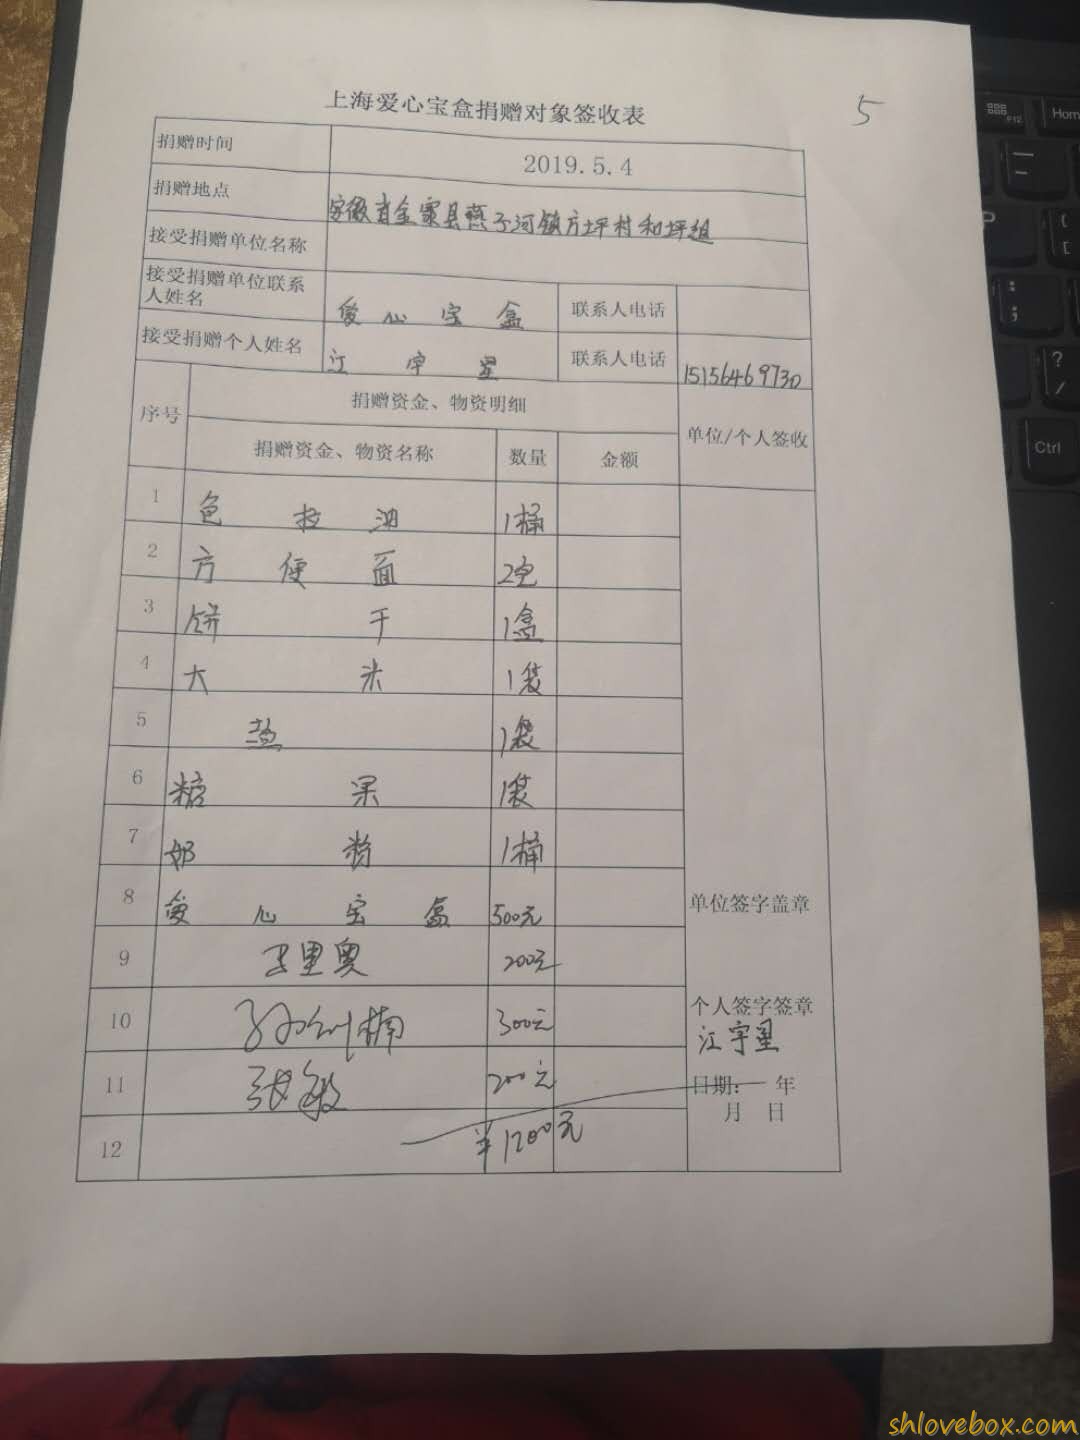 上海爱心宝盒捐赠对象签收表
5
捐赠时间 2019.5.4
捐赠地点 安徽省金寨县燕子河镇方坪村和坪组
接受捐赠单位名称
接受捐赠单位联系人姓名 爱心宝盒 联系人电话
接受捐赠个人姓名 江宇星 联系人电话 15156469730
序号 捐赠资金、物资明细 单位/个人签收
捐赠资金、物资名称 数量 金额
1 色拉油 1桶
2 方便面 2包
3 饼干 1盒
4 大米 1袋
5 盐 1袋
6 糖果 1袋
7 奶粉 1桶
8 爱心宝盒 500元
9 里奥 200元
10 300元
11 张敏 200元
12 ¥1200元
单位签字盖章
个人签字签章
江宇星
日期： 年
月 日
F12
Home
P
?
/
;
[
Ctrl
shlovebox.com